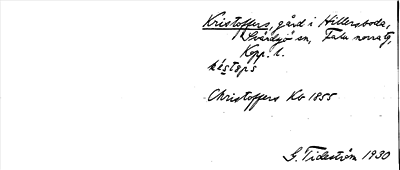 Kristoffers, gård i Hillersboda,
Svärdsjö sn, Falu norra tg,
Kopp. l.
Christoffers Kb 1855
G. Tideström 1930